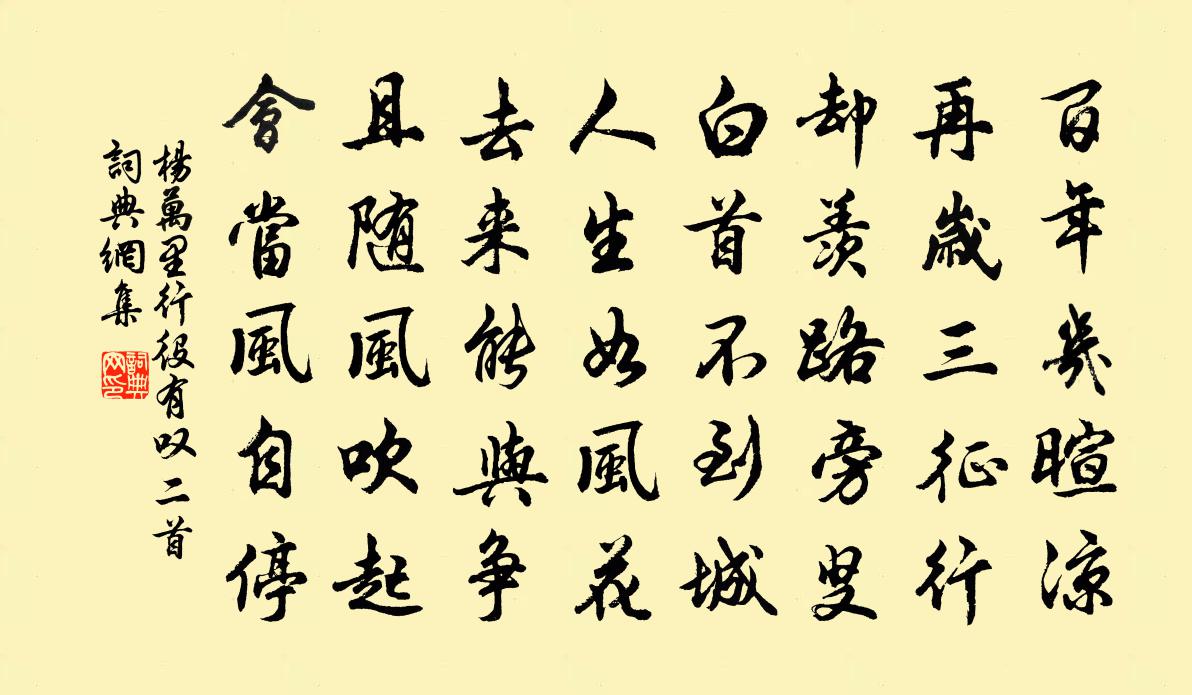 百年幾暄涼
再歲三征行
却羨路旁叟
白首不到城
人生如風花
去来能與争
且随風吹起
會當風自停
楊萬里行役有叹二首
詞典網集
詞典网印